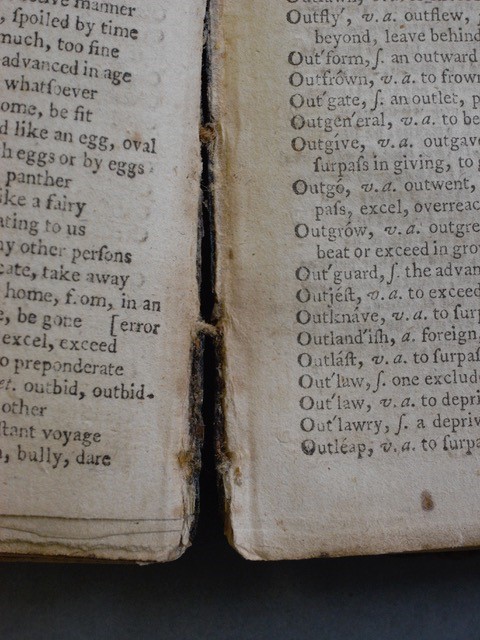 manner
, ſpoiled by time
much, too fine
advanced in age
whatſoever
ome, be fit
d like an egg, oval
h eggs or by eggs
panther
ike a fairy
ating to us
ny other perſons
cate, take away
home, f.om, in an
e, be gone [error
excel, exceed
o preponderate
et. outbid, outbid.
other
ſtant voyage
, bully, dare
Outflý, v.a. outflew,
beyond, leave behind
Out'form, ſ. an outward
Outfrówn, v.a. to frown
Out'gate, ſ. an outlet, p
Outgen'eral, v.a. to be
Outgíve, v.a. outgave
ſurpaſs in giving, to g
Outgó, v.a. outwent,
paſs, excel, overreac
Outgrów, v.a. outgre
beat or exceed in grow
Out'guard, ſ. the advan
Outjéſt, v.a. to exceed
Outknáve, v.a. to ſurp
Outland'iſh, a. foreign,
Outláſt, v.a. to ſurpaſ
Out'law, ſ. one exclude
Out'law, v.a. to depri
Out'lawry, ſ. a depriv
Outléap, v.a. to ſurpa